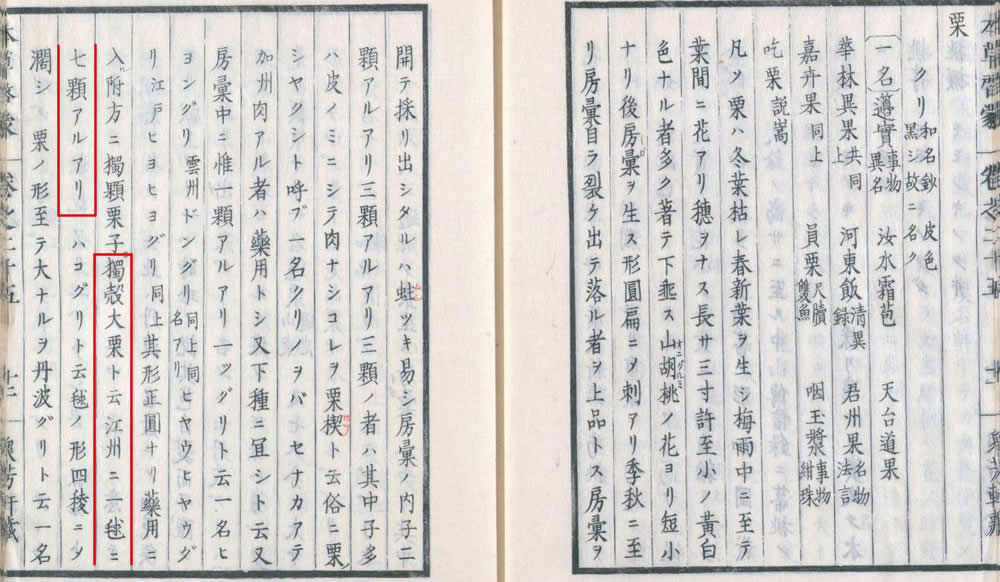 栗
クリ 和名鈔 皮色黒シ故ニ名ク
〔一名〕薳實 事物異名 汝水霜苞 天台道果
華林異果 共同上 河東飯 清異録 君州果 名物法言
嘉卉果 同上 員栗 尺牘雙魚 咽玉漿 事物紺珠
吃栗 説嵩
凡ソ栗ハ冬葉枯レ春新葉ヲ生シ梅雨中ニ至テ
葉間ニ花アリ穗ヲナス長サ三寸許至小ノ黄白
色ナル者多ク著テ下埀ス山胡桃ノ花ヨリ短小
ナリ後房彙ヲ生ス形圓扁ニノ刺アリ季秋ニ至
リ房彙自ラ裂ケ出テ落ル者ヲ上品トス房彙ヲ
開テ採リ出シタルハ蛀ツキ易シ房彙ノ内子二
顆アルアリ三顆アルアリ三顆ノ者ハ其中子多
ハ皮ノミニシテ肉ナシコレヲ栗楔ト云俗ニ栗
シヤクシト呼ブ一名クリノヲバ セナカアテ
加州肉アル者ハ藥用トシ又下種ニ冝シト云又
房彙中ニ惟一顆アルアリ一ツグリト云一名ヒ
ヨングリ 雲州ドングリ 同上同名アリ ヒヤウヒヤウグ
リ 江戸ヒヨヒヨグリ 同上其形正圓ナリ藥用ニ
入附方ニ獨顆栗子獨殼大栗ト云江州ニ一毬ニ
七顆アルアリ ハコグリト云毬ノ形四稜ニノ
濶シ 栗ノ形至テ大ナルヲ丹波グリト云一名